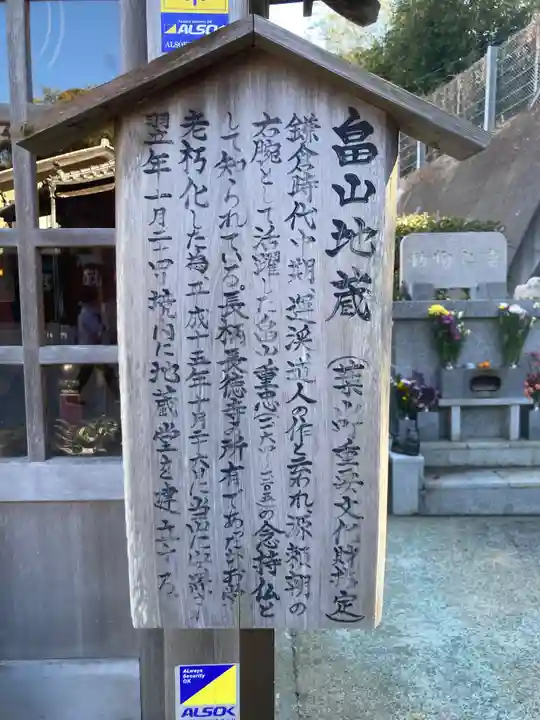 Always Security OK
ALSOK
畠山地蔵 (葉山町重要文化財指定)
鎌倉時代中期、運渓道人の作と云われ源頼朝の
右腕として活躍した畠山重忠(一一六四~一二〇五)の念持仏と
して知られている。長柄長徳寺所有であったがお堂
老朽化した為平成十五年十月
翌年十一月二十四日境内に地蔵堂を建立する
Always
Security
OK
ALSOK